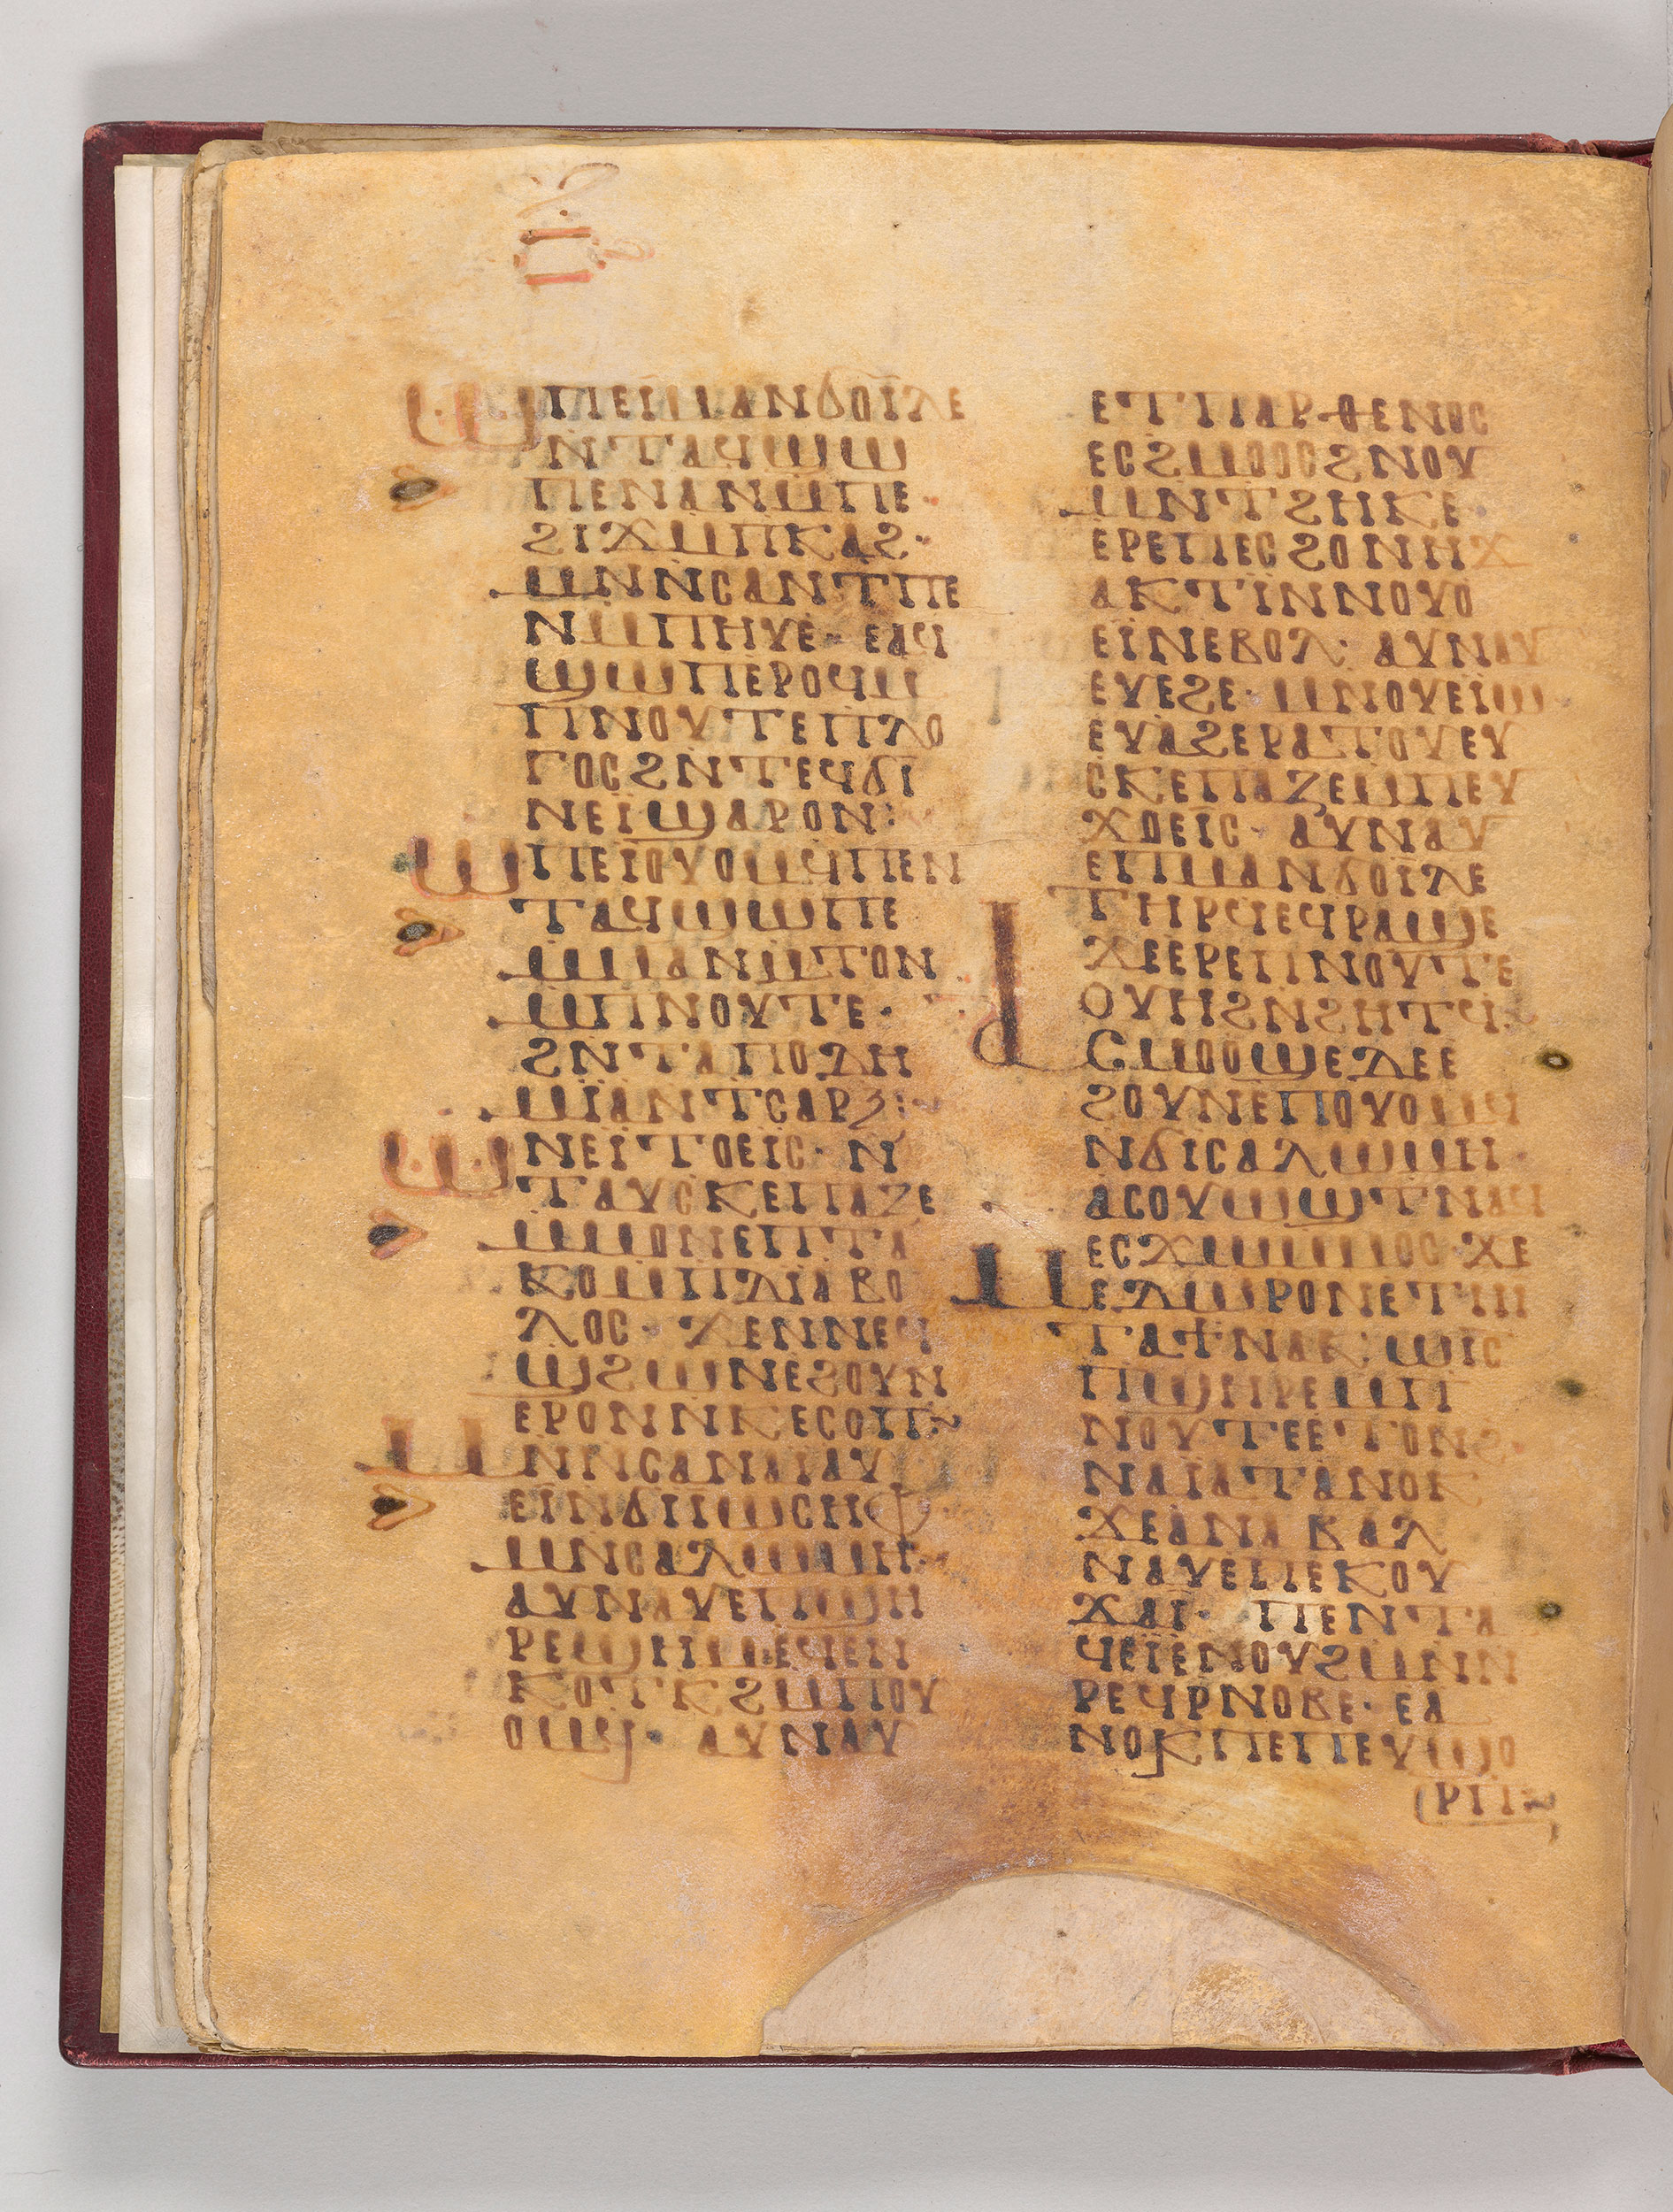 ⲠⲒ
ⲰⲠⲈⲒⲘⲀⲚϬⲞⲒⲖⲈ
ⲚⲦⲀϤϢⲰ
ⲠⲈⲚⲀⲚⲘⲠⲈ·
ϨⲒϪⲘⲠⲔⲀϨ·
ⲘⲚⲚⲤⲀⲚⲦⲠⲈ
ⲚⲘⲠⲎⲨⲈ· ⲈⲀϤ
ϢⲰⲠⲈⲢⲞϤⲚ
ϬⲒⲠⲚⲞⲨⲦⲈⲠⲖⲞ
ⲄⲞⲤϨⲚⲦⲈϤϬⲒ
ⲚⲈⲒϢⲀⲢⲞⲚ:
ⲰⲠⲈⲒⲞⲨⲞⲘϤⲠⲈⲚ
ⲦⲀϤϢⲰⲠⲈ
ⲘⲘⲀⲚⲘⲦⲞⲚ
ⲘⲠⲚⲞⲨⲦⲈ·
ϨⲚⲦⲀⲠⲞⲆⲎ
ⲘⲒⲀⲚⲦⲤⲀⲢⲜ:
ⲰⲚⲈⲒⲦⲞⲈⲒⲤ· Ⲛ
ⲦⲀⲨⲤⲔⲈⲠⲀⲌⲈ
ⲘⲘⲞⲚⲈⲠⲦⲀ
ⲔⲞⲘⲠⲆⲒⲀⲂⲞ
ⲖⲞⲤ· ϪⲈⲚⲚⲈϤ
ϢϨⲰⲚⲈϨⲞⲨⲚ
ⲈⲢⲞⲚⲚⲔⲈⲤⲞⲠ~
ⲘⲚⲚⲤⲀⲚⲀⲒⲀⲨ
ⲈⲒⲚϬⲒⲒⲰⲤⲎⲪ
ⲘⲚⲤⲀⲖⲰⲘⲎ·
ⲀⲨⲚⲀⲨⲈⲠϢⲎ
ⲢⲈϢⲎⲘⲈϤⲈⲚ
ⲔⲞⲦⲔϨⲘⲠⲞⲨ
ⲞⲘϤ· ⲀⲨⲚⲀⲨ
ⲈⲦⲠⲀⲢⲐⲈⲚⲞⲤ
ⲈⲤϨⲘⲞⲞⲤϨⲚⲞⲨ
ⲘⲚⲦϨⲎⲔⲈ·
ⲈⲢⲈⲠⲈⲤϨⲞⲚⲎϪ
ⲀⲔⲦⲒⲚⲚⲞⲨⲞ
ⲈⲒⲚⲈⲂⲞⲖ: ⲀⲨⲚⲀⲨ
ⲈⲨⲈϨⲈ· ⲘⲚⲞⲨⲈⲒⲰ
ⲈⲨⲀϨⲈⲢⲀⲦⲞⲨⲈⲨ
ⲤⲔⲈⲠⲀⲌⲈⲘⲠⲈⲨ
ϪⲞⲈⲒⲤ· ⲀⲨⲚⲀⲨ
ⲈⲠⲘⲀⲚϬⲞⲒⲖⲈ
ⲦⲎⲢϤⲈϤⲢⲀϢⲈ
ϪⲈⲈⲢⲈⲠⲚⲞⲨⲦⲈ
ⲞⲨⲎϨⲚϨⲎⲦϤ·
ⲀⲤⲘⲞⲞϢⲈⲆⲈⲈ
ϨⲞⲨⲚⲈⲠⲞⲨⲞⲘϤ
ⲚϬⲒⲤⲀⲖⲰⲘⲎ·
ⲀⲤⲞⲨⲰϢⲦⲚⲀϤ
ⲈⲤϪⲰⲘⲘⲞⲤ·ϪⲈ
ⲘⲈⲆⲰⲢⲞⲚⲈⲦⲘ
ⲦⲀϮⲚⲀⲔ: ⲰⲒⲤ
ⲠϢⲎⲢⲈⲘⲠ
ⲚⲞⲨⲦⲈⲈⲦⲞⲚϨ·
ⲚⲀⲒⲀⲦⲀⲚⲞⲔ
ϪⲈⲀⲚⲀⲂⲀⲖ
ⲚⲀⲨⲈⲠⲈⲔⲞⲨ
ϪⲀⲒ· ⲠⲈⲚⲦⲀ
ϤⲈⲒⲈⲚⲞⲨϨⲘⲚⲚ
ⲢⲈϤⲢⲚⲞⲂⲈ· ⲈⲀ
ⲚⲞⲔⲠⲈⲠⲈⲨϢⲞ
(ⲢⲠ~